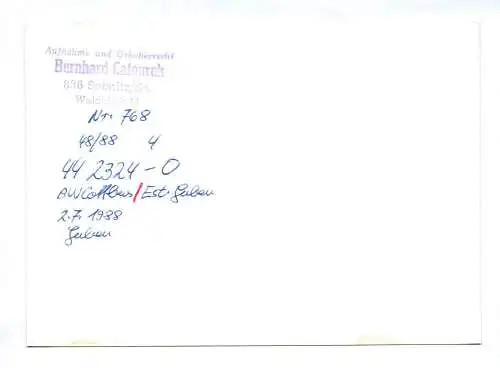 Aufnahme und Urheberrecht
Bernhard
836 Sebnitz/Sa.
Nr. 768
48/88 4
44 2324-0
AW Cottbus/Est. Guben
2.7.1988
Guben